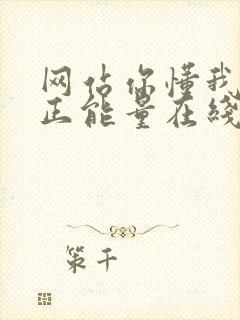 网站你懂我
正能量在线
策千